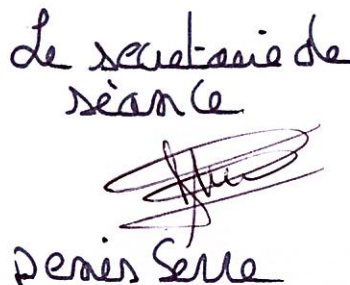 Le secrétaire de
séance
Denis Serre